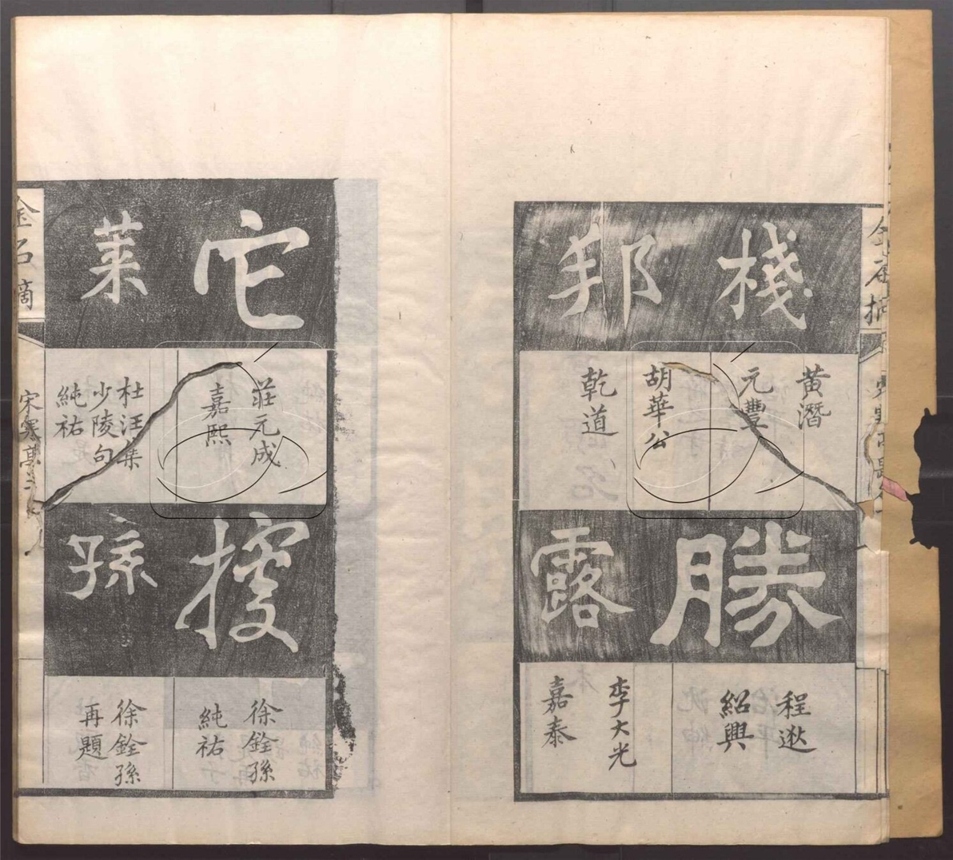 棧
黃潛
元豐
邦
胡華公
乾道
勝
程逖
紹興
露
李大光
嘉泰
它
莊元成
嘉熙
萊
杜汪葉
少陵句
純祐
徐銓孫
純祐
孫
徐銓孫
再題
金石摘